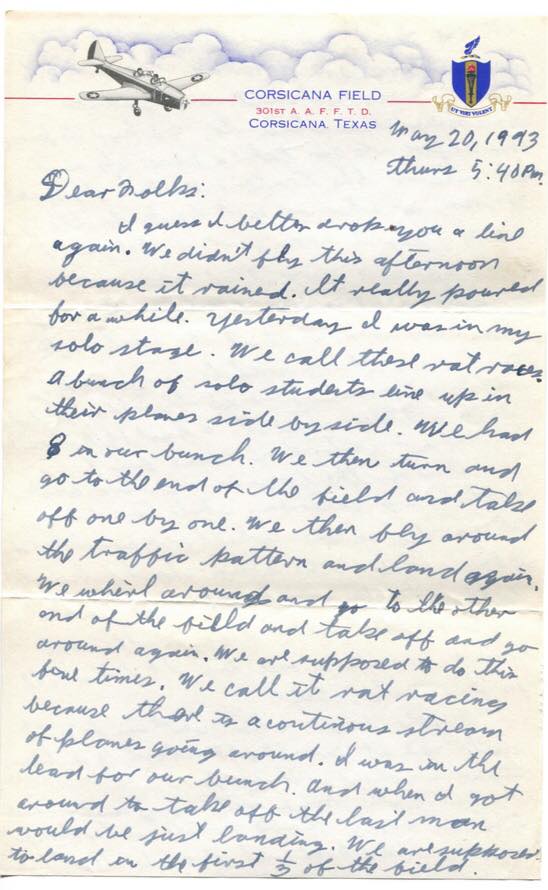 CORSICANA FIELD
301ST A. A. F. F. T. D.
CORSICANA, TEXAS
UT VIRI VOLENT
May 20, 1943
Thurs 5:40 Pm.
Dear Folks:
I guess I better drop you a line
again. We didn't fly this afternoon
because it rained. It really poured
for a while. Yesterday I was in my
solo stage. We call these rat races.
A bunch of solo students line up in
their planes side by side. We had
8 in our bunch. We then turn and
go to the end of the field and take
off one by one. We then fly around
the traffic pattern and land again.
We whirl around and go to the other
end of the field and take off and go
around again. We are supposed to do this
five times. We call it rat racing
because there is a continous stream
of planes going around. I was in the
lead for our bunch. And when I got
around to take off the last man
would be just landing. We are supposed
to land in the first 1/3 of the field.